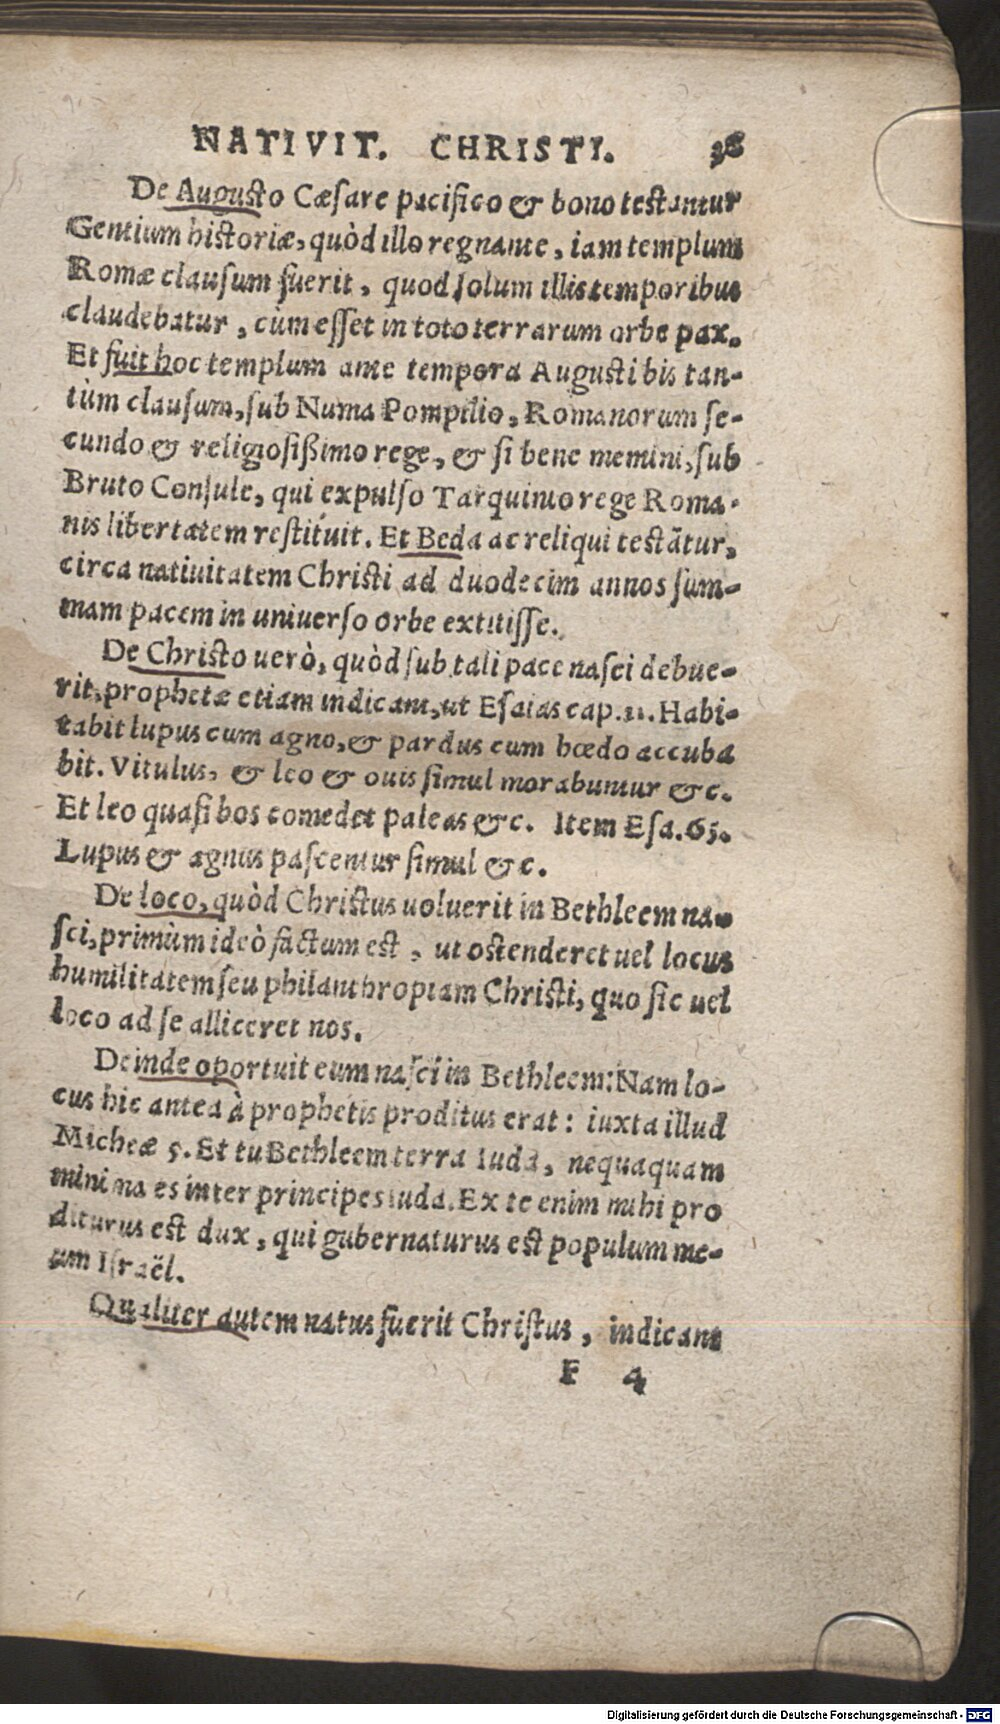 NATIVIT. CHRISTI. 38
De Augusto Cæsare pacifico & bono testantur
Gentium historiæ, quòd illo regnante, iam templum
Romæ clausum fuerit, quod solum illis temporibus
claudebatur, cùm esset in toto terrarum orbe pax.
Et fuit hoc templum ante tempora Augusti bis tan-
tùm clausum, sub Numa Pompilio, Romanorum se-
cundo & religiosißimo rege, & si bene memini, sub
Bruto Consule, qui expulso Tarquinio rege Roma-
nis libertatem restituit. Et Beda ac reliqui testãtur,
circa natiuitatem Christi ad duodecim annos sum-
mam pacem in uniuerso orbe extitisse.
De Christo uerò, quòd sub tali pace nasci debue-
rit, prophetæ etiam indicant, ut Esaias cap. 11. Habi-
tabit lupus cum agno, & pardus cum hœdo accuba
bit. Vitulus, & leo & ouis simul morabuntur &c.
Et leo quasi bos comedet paleas &c. Item Esa. 65.
Lupus & agnus pascentur simul &c.
De loco, quòd Christus uoluerit in Bethleem na-
sci, primùm ideò factum est, ut ostenderet uel locus
humilitatem seu philanthropiam Christi, quo sic uel
loco ad se alliceret nos.
Deinde oportuit eum nasci in Bethleem: Nam lo-
cus hic antea à prophetis proditus erat: iuxta illud
Micheæ 5. Et tu Bethleem terra Iuda, nequaquam
minima es inter principes Iuda. Ex te enim mihi pro
diturus est dux, qui gubernaturus est populum me-
um Israël.
Qualiter autem natus fuerit Christus, indicant
F 4
Digitalisierung gefördert durch die Deutsche Forschungsgemeinschaft - DFG